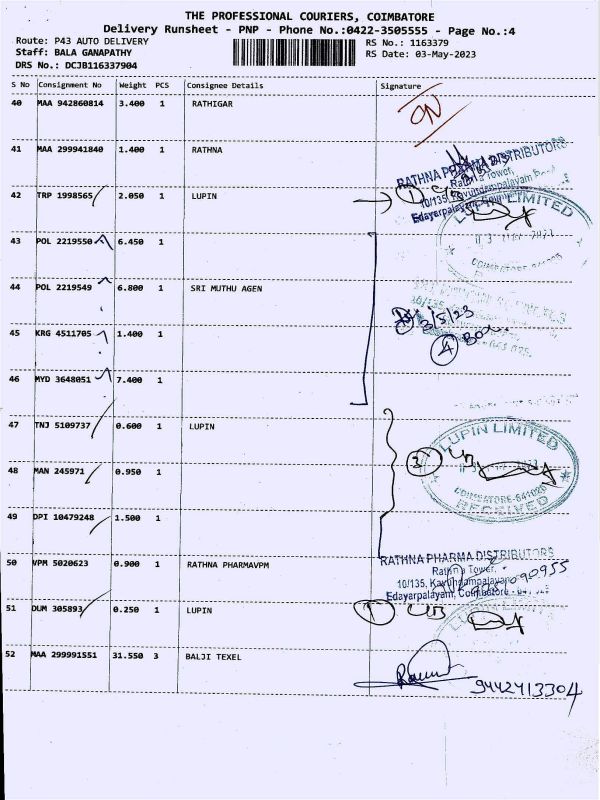 THE PROFESSIONAL COURIERS, COIMBATORE
Delivery Runsheet - PNP - Phone No.:0422-3505555 - Page No.:4
Route: P43 AUTO DELIVERY
Staff: BALA GANAPATHY
DRS No.: DCJB116337904
RS No.: 1163379
RS Date: 03-May-2023
S No Consignment No Weight PCS Consignee Details Signature
40 MAA 942860814 3.400 1 RATHIGAR
ON
41 MAA 299941840 1.400 1 RATHNA
RATHNA PHARMA DISTRIBUTORS
Rathna Tower,
10/135, Kavundampalayam
Edayarpalayam, Coimbatore
42 TRP 1998565 2.050 1 LUPIN
1
LUPIN LIMITED
COIMBATORE
43 POL 2219550 6.450 1
44 POL 2219549 6.800 1 SRI MUTHU AGEN
3/5/23
4 Box
45 KRG 4511705 1.400 1
46 MYD 3648051 7.400 1
47 TNJ 5109737 0.600 1 LUPIN
LUPIN LIMITED
3
48 MAN 245971 0.950 1
COIMBATORE-641026
RECEIVED
49 DPI 10479248 1.500 1
50 VPM 5020623 0.900 1 RATHNA PHARMAVPM
RATHNA PHARMA DISTRIBUTORS
Rathna Tower,
10/135, Kavundampalayam
Edayarpalayam, Coimbatore
51 DUM 305893 0.250 1 LUPIN
1
52 MAA 299991551 31.550 3 BALJI TEXEL
9442413304